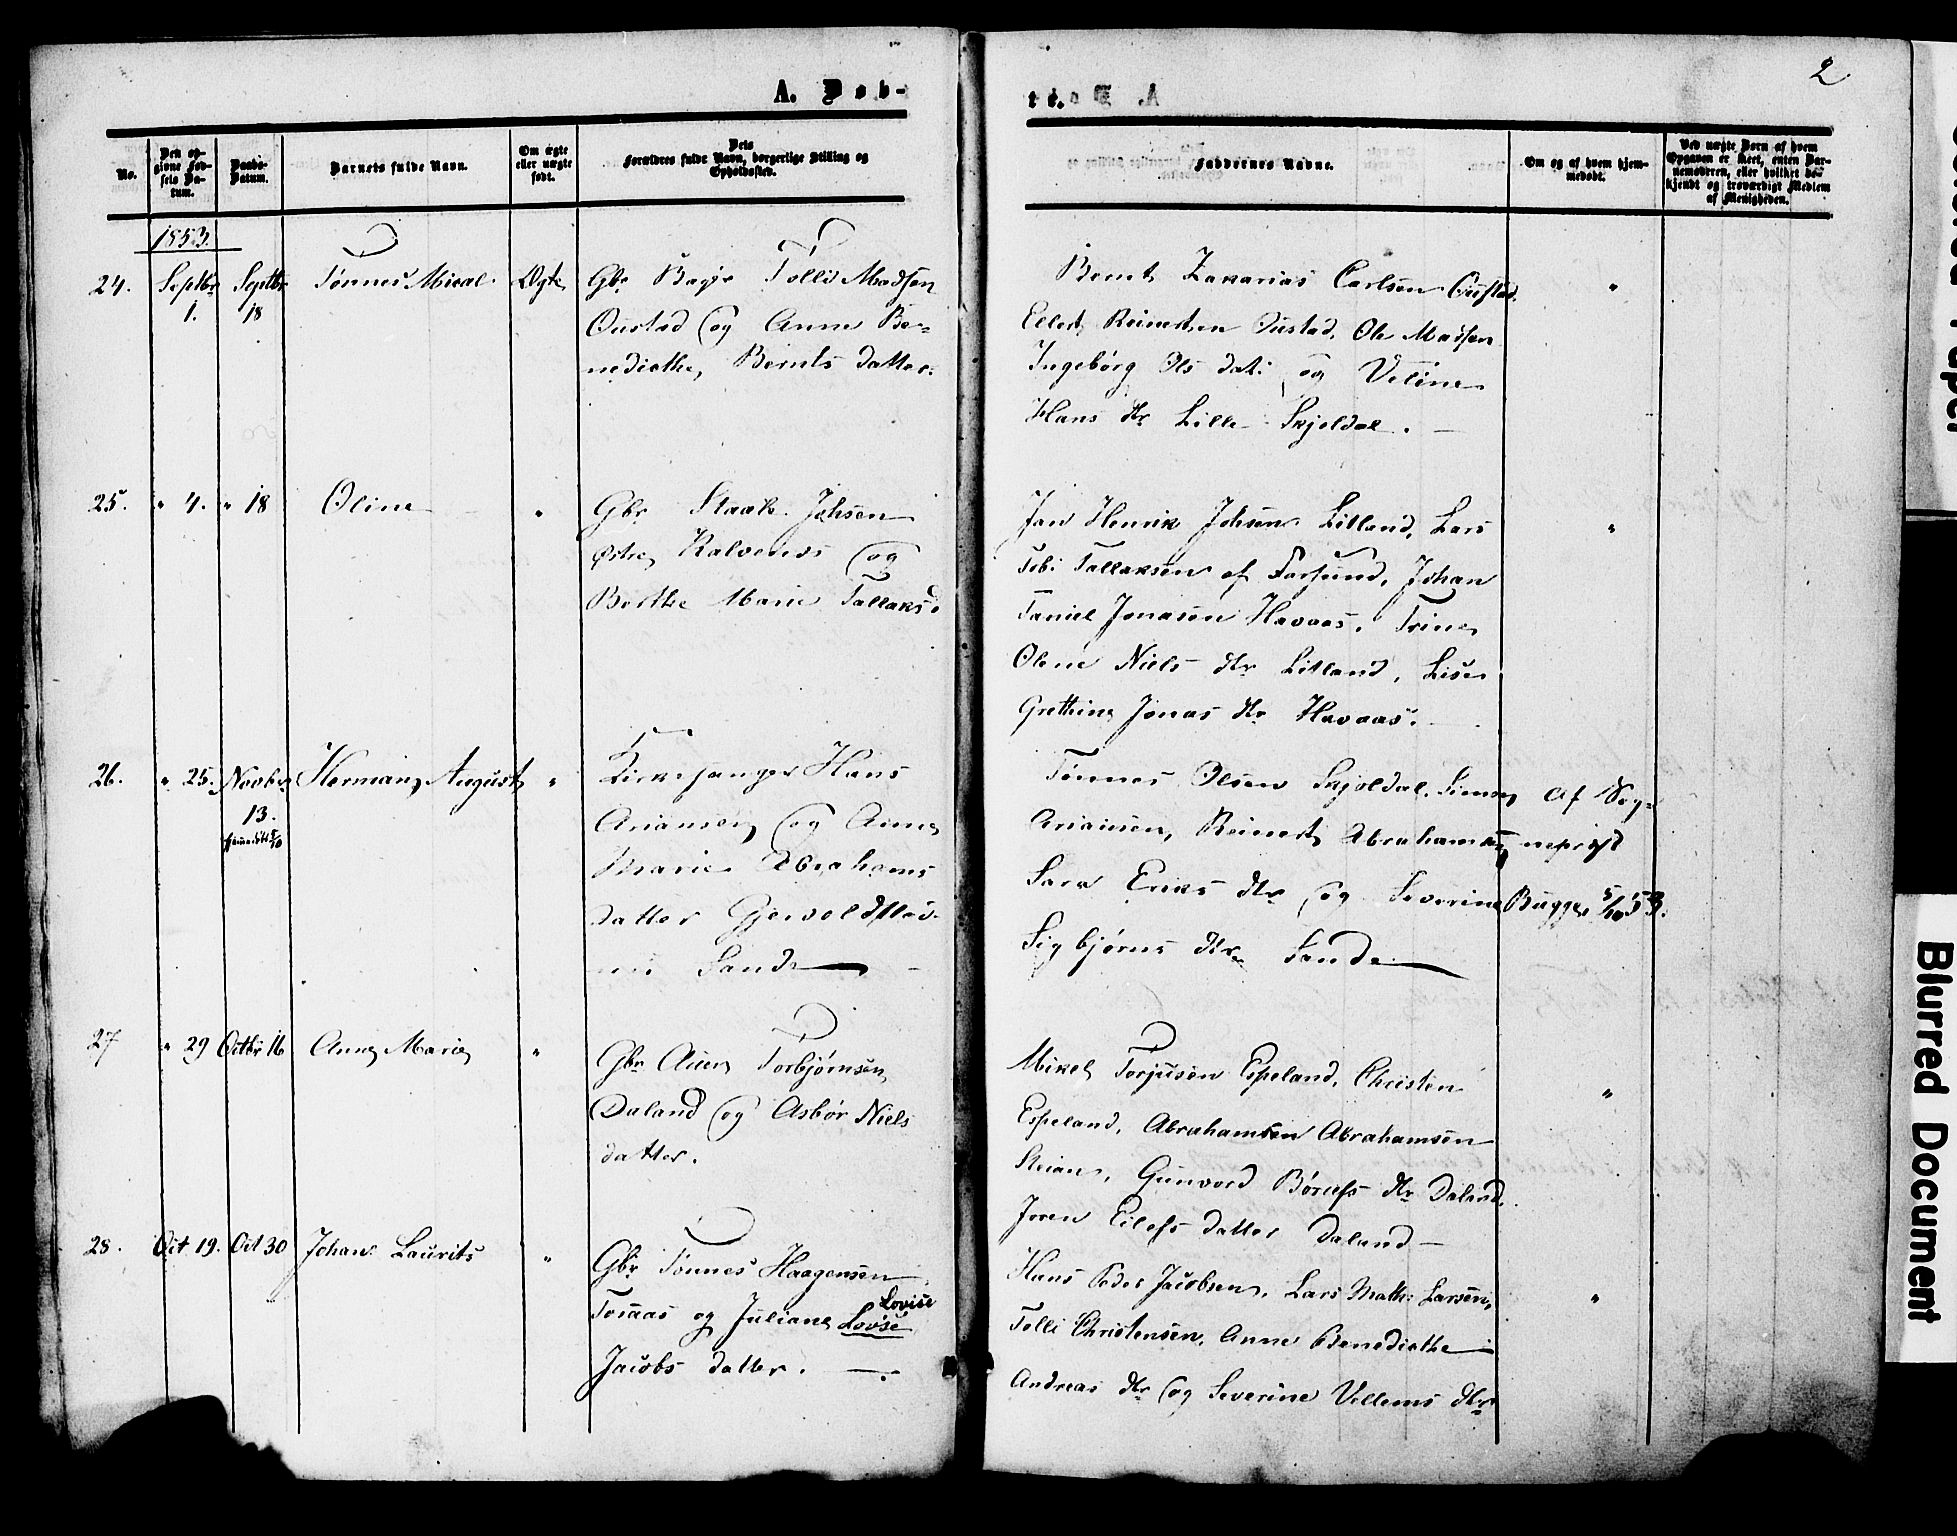 A. Døb-
No.
Den op-
givne Fød-
sels Da-
tum.
Daabs-
Datum.
Barnets fulde Navn.
Om ægte
eller uægte
født.
Dets
Forældres fulde Navn, borgerlige Stilling og
Opholdssted.
1853.
24. Septbr 1. Septbr 18 Tønnes Mical. Ægte
Gbr Tolli Madsen
Oustad og Anne Be-
nedicthe, Bernts datter.
25. " 4. " 18 Oline "
Gbr Staale Johsen
østre og
Berthe Marie Tallaks d
26. " 25. Novbr 13. hjemmedøbt 5/10 Herman August "
Kirkesanger Hans
Ariansen og Anne
Marie Abrahams
datter
Sande
27 " 29 Octbr 16 Anne Marie "
Gbr Torbjørnsen
Daland og Asbør Niels
datter.
28. Oct 19. Oct 30 Johan Laurits "
Gbr Tønnes Haagensen
Tomaas og Juliane Lovise Lovise
Jacobs datter.
2
te.
Faddernes Navne.
Om og af hvem hjem-
medøbt.
Ved uægte Børn af hvem
Opgaven er skeet, enten Bar-
nemoderen, eller hvilket be-
kjendt og troværdigt Medlem
af Menigheden.
Bernt Zakarias Carlsen Oustad "
Eilert Reinertsen Oustad, Ole Madsen
Ingebørg Ols dat: og Veline
Hans dtr Lille Skjoldal.
Jan Henrik Johsen Litland, Lars "
Tobi Tallaksen af Farsund, Johan
Daniel Jonasen Havaas, Trine
Olene Niels dtr Litland, Lise
Grethine Jonas dtr Havaas.
Tønnes Olsen Skjoldal, Simon Af Sog-
Ariansen, Reinert Abrahamsen nepræst
Sara Eriks dtr og Severine Bugge 5/10 53.
Sigbjørns dtr Sande
Mikel Torjusen Espeland, Christen "
Espeland, Abrahamsen Abrahamsen
Gunvord dtr Daland,
Joren Eilefs datter Daland
Hans Peder Jacobsen, Lars Math: Larsen, "
Tolli Christensen, Anne Benedicthe
Andreas dtr og Severine Vellems dtr
Blurred Document